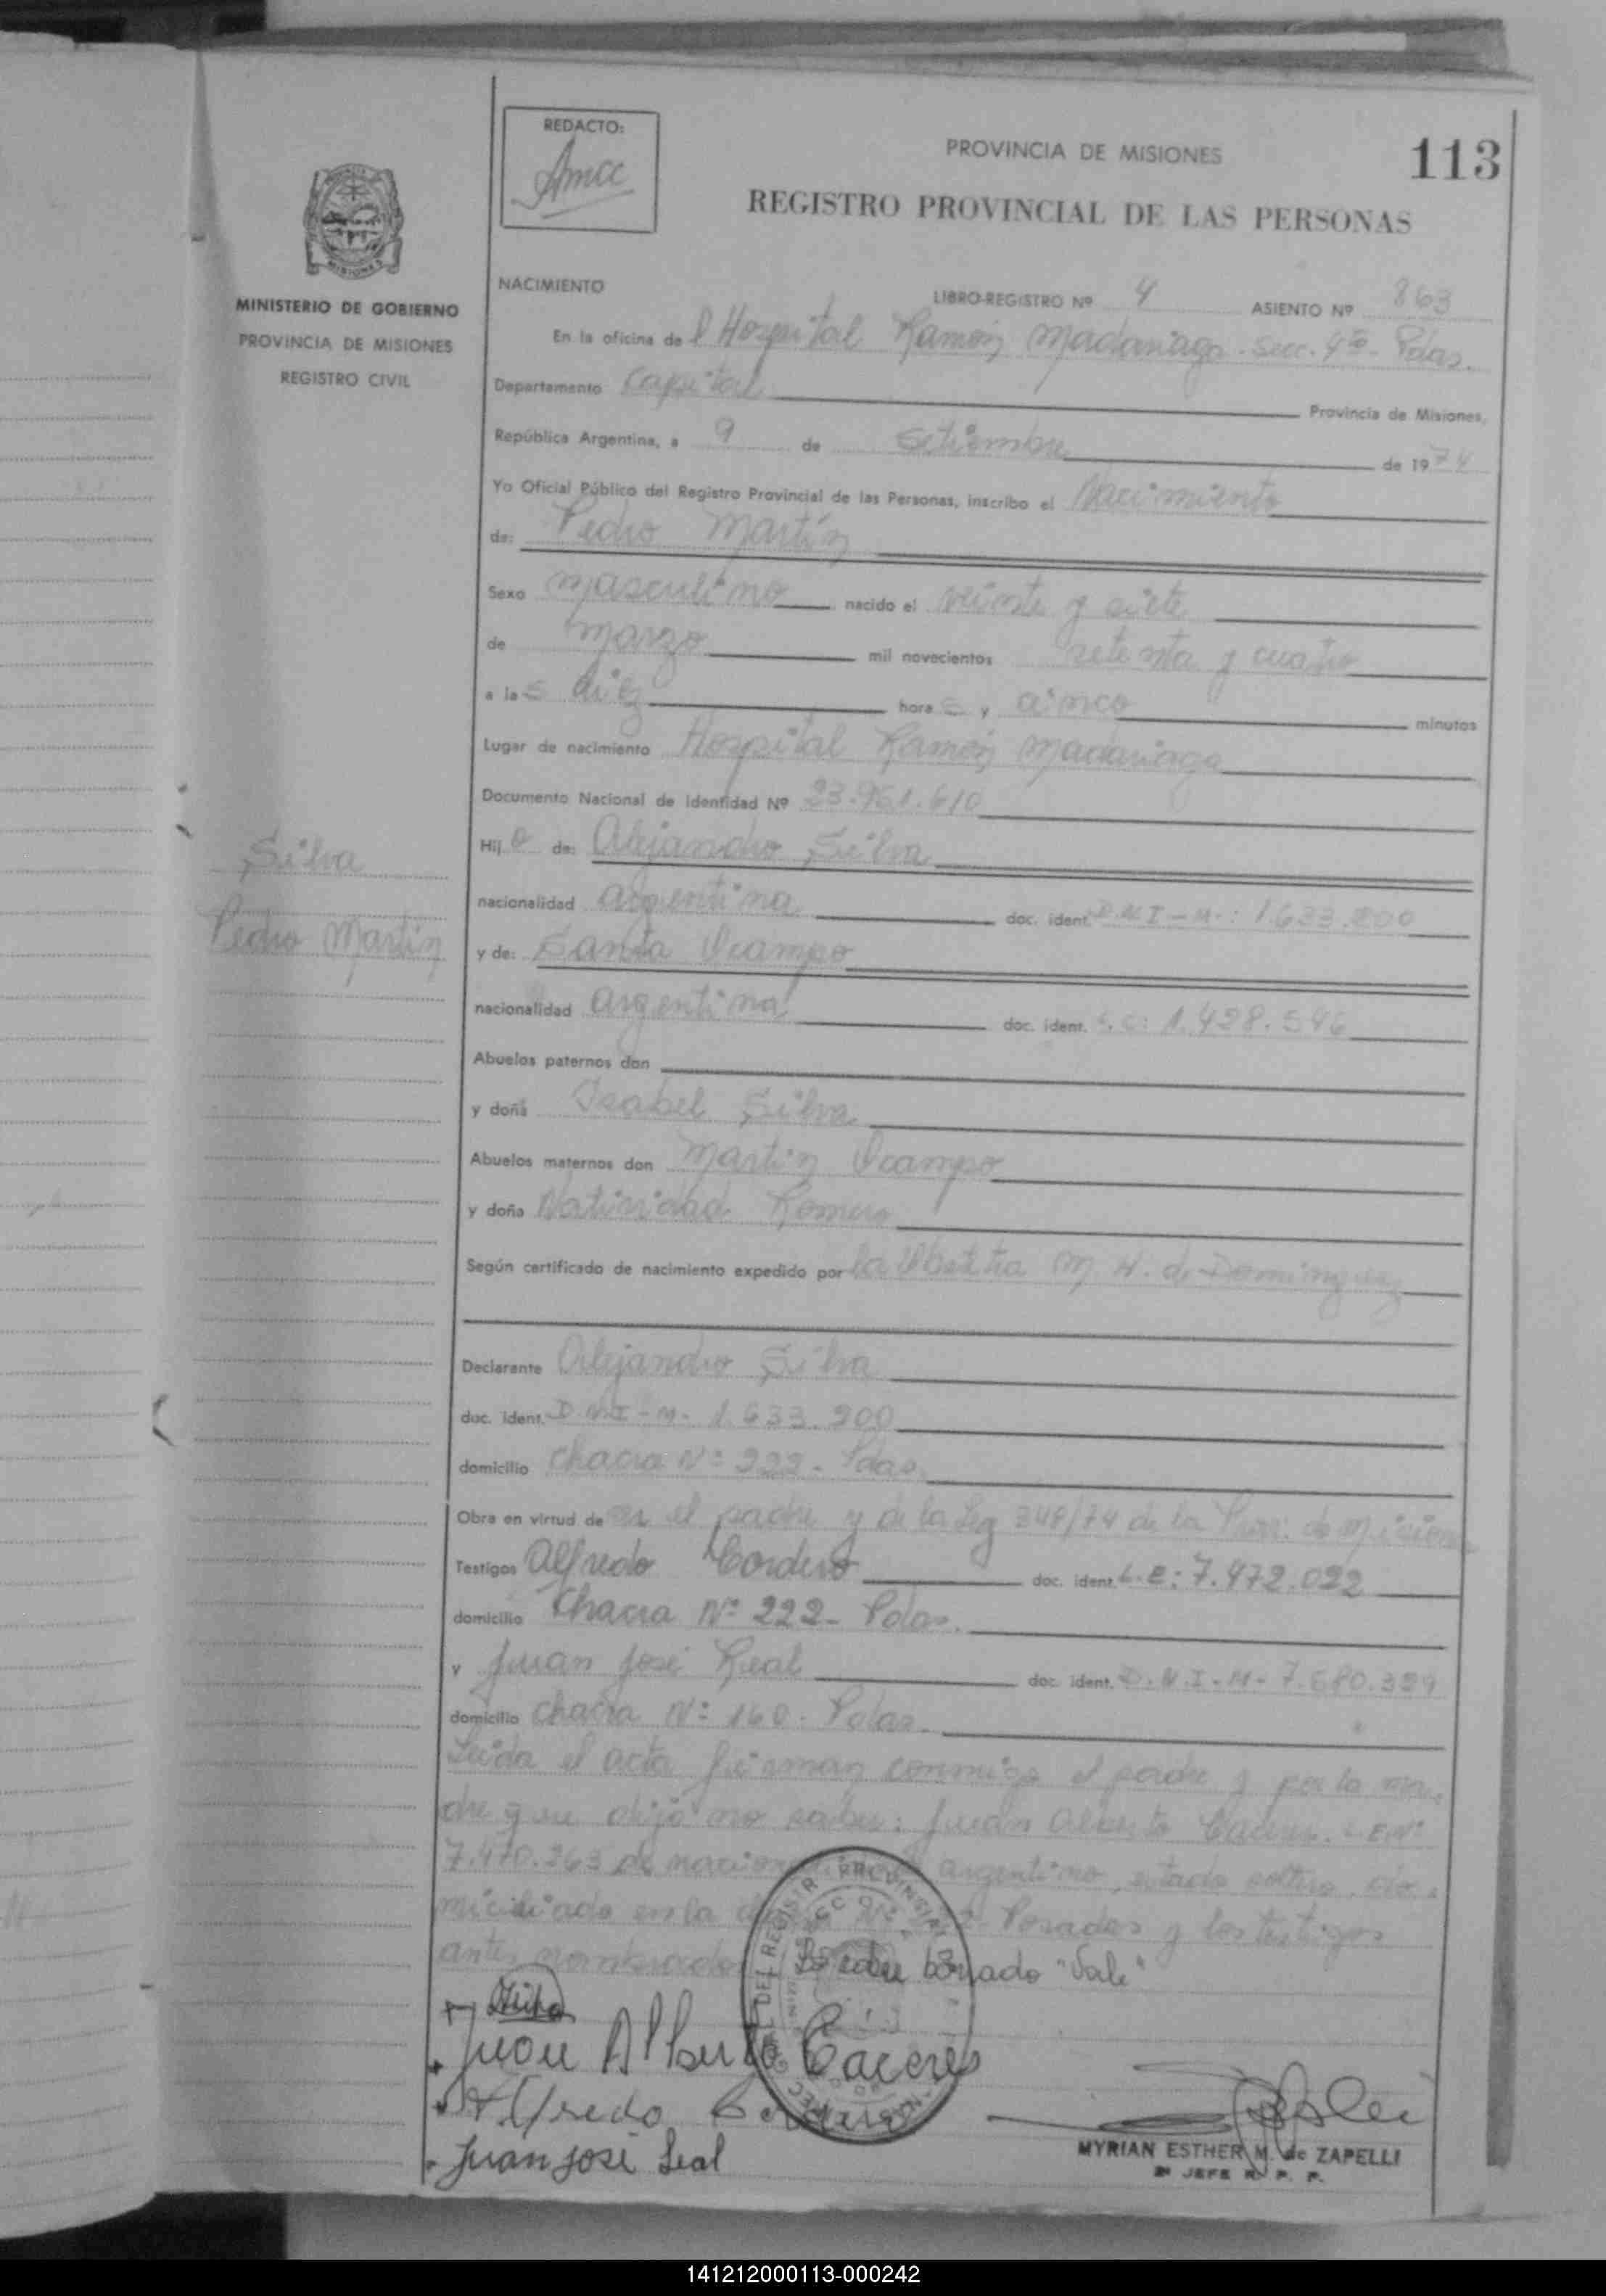 REDACTO:
Amcc
PROVINCIA DE MISIONES
113
REGISTRO PROVINCIAL DE LAS PERSONAS
MISIONES
MINISTERIO DE GOBIERNO
PROVINCIA DE MISIONES
REGISTRO CIVIL
NACIMIENTO
LIBRO-REGISTRO Nº 4 ASIENTO Nº 863
En la oficina del Hospital Ramón Madariaga - Secc. 4ta - Pdas.
Departamento Capital Provincia de Misiones,
República Argentina, a 9 de Setiembre de 1974
Yo Oficial Público del Registro Provincial de las Personas, inscribo el Nacimiento
de: Pedro Martín
Sexo masculino nacido el veinte y siete
de marzo mil novecientos setenta y cuatro
a las diez horas y cinco minutos
Lugar de nacimiento Hospital Ramón Madariaga
Documento Nacional de Identidad Nº 23.951.610
Hijo de: Alejandro Silva
nacionalidad argentina doc. ident. D.N.I-M-: 1.633.200
Silva
Pedro Martín
y de: Santa Ocampo
nacionalidad argentina doc. ident. L.C: 1.428.546
Abuelos paternos don
y doña Isabel Silva
Abuelos maternos don Martín Ocampo
y doña Natividad Romero
Según certificado de nacimiento expedido por la Obstetra M. H. de Dominguez
Declarante Alejandro Silva
doc. ident. D.N.I-M- 1.633.200
domicilio Chacra Nº 222 - Pdas.
Obra en virtud de ser el padre y de la Ley 348/74 de la Prov. de Misiones
Testigos Alfredo Cordero doc. ident. L.E: 7.472.022
domicilio Chacra Nº 222 - Pdas.
y Juan José Leal doc. ident. D.N.I-M- 7.680.329
domicilio Chacra Nº 160 - Pdas.
Leída el acta firman conmigo el padre y por la ma-
dre que dijo no saber: Juan Alberto Caceres. L.E.Nº
7.470.263 de nacionalidad argentino, estado soltero, do-
miciliado en la Chacra Nº Posadas y los testigos
antes nombrados borrado "Vale"
Silva
Juan Alberto Caceres
Alfredo Cordero
Juan José Leal
MYRIAN ESTHER M. de ZAPELLI
2º JEFE R. P. P.
141212000113-000242